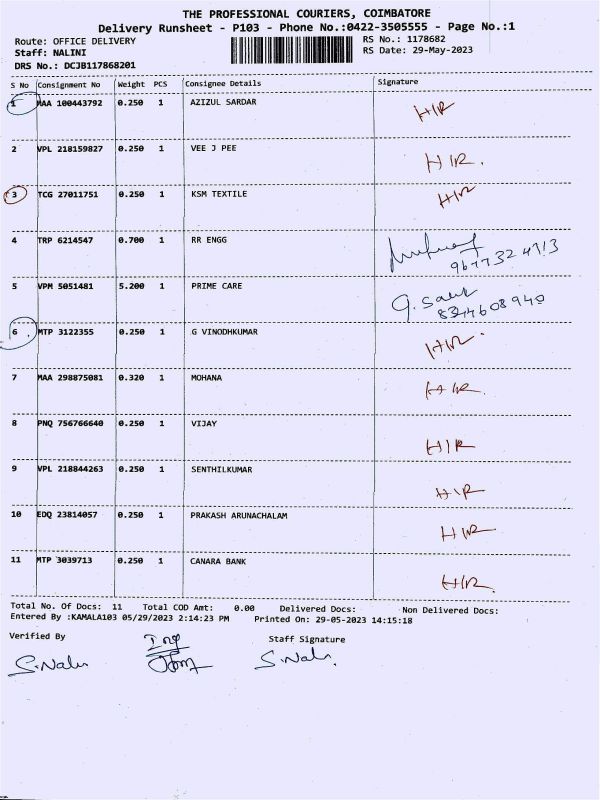 THE PROFESSIONAL COURIERS, COIMBATORE
Delivery Runsheet - P103 - Phone No.:0422-3505555 - Page No.:1
Route: OFFICE DELIVERY RS No.: 1178682
Staff: NALINI RS Date: 29-May-2023
DRS No.: DCJB117868201
S No Consignment No Weight PCS Consignee Details Signature
1 MAA 100443792 0.250 1 AZIZUL SARDAR HIR
2 VPL 218159827 0.250 1 VEE J PEE HIR.
3 TCG 27011751 0.250 1 KSM TEXTILE HIR
4 TRP 6214547 0.700 1 RR ENGG
5 VPM 5051481 5.200 1 PRIME CARE
8344608940
6 MTP 3122355 0.250 1 G VINODHKUMAR HIR.
7 MAA 298875081 0.320 1 MOHANA HIR.
8 PNQ 756766640 0.250 1 VIJAY HIR
9 VPL 218844263 0.250 1 SENTHILKUMAR HIR
10 EDQ 23814057 0.250 1 PRAKASH ARUNACHALAM HIR
11 MTP 3039713 0.250 1 CANARA BANK HIR.
Total No. Of Docs: 11 Total COD Amt: 0.00 Delivered Docs: Non Delivered Docs:
Entered By :KAMALA103 05/29/2023 2:14:23 PM Printed On: 29-05-2023 14:15:18
Verified By Staff Signature
S.Nalini S.Nalini